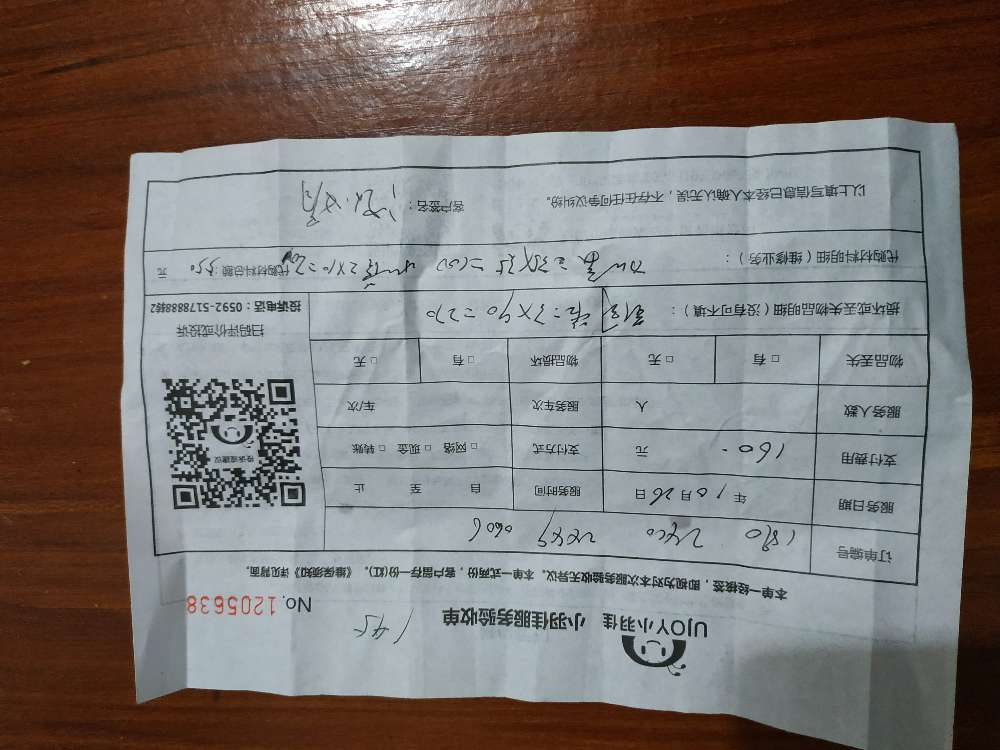 UJOY小羽佳 小羽佳服务验收单
No. 1205638
本单一经接签，即视为对本次服务验收无异议。本单一式两份，客户留存一份(红)。《维保须知》详见背面。
订单编号
服务日期 年10月26日 服务时间 自 至 止
支付费用 160 元 支付方式 □ 网络 □ 现金 □ 转账
服务人数 人 服务车次 车/次
物品丢失 □ 有 □ 无 物品损坏 □ 有 □ 无
扫码评价或投诉
投诉电话：0592-5178888转2
损坏或丢失物品明细（没有可不填）： 3×90=270
代购材料明细（维修业务）： 代购材料总额：550 元
以上填写信息已经本人确认无误，不存在任何争议纠纷。 客户签名：